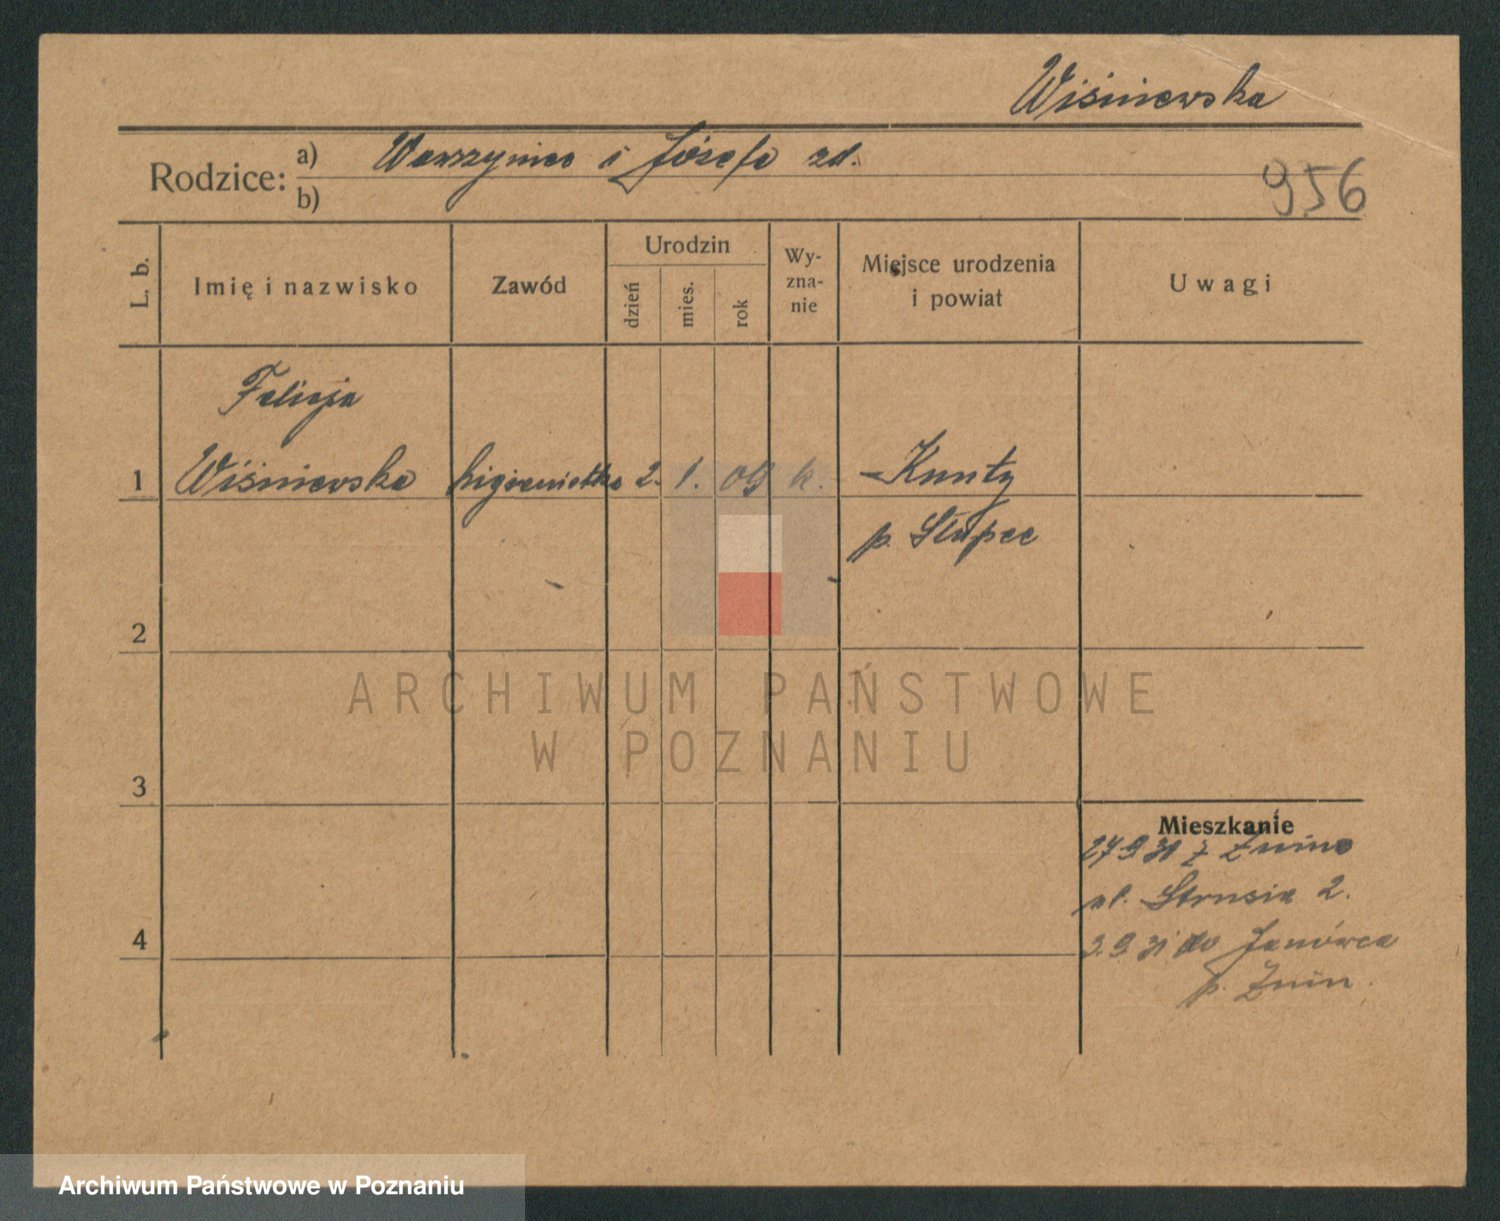 Wiśniewska
Rodzice: a) Wawrzyniec i Józefa zd.
b)
956
L. b.
Imię i nazwisko
Zawód
Urodzin
dzień
mies.
rok
Wy-
zna-
nie
Miejsce urodzenia
i powiat
Uwagi
Felicja
1 Wiśniewska higienistka 2. 1. 09 k. Kunty
p. Słupce
2
ARCHIWUM PAŃSTWOWE
W POZNANIU
3
Mieszkanie
27 9 31 z Żnina
ul. Strusia 2.
4
3. 9. 31 do Janówca
p. Żnin.
Archiwum Państwowe w Poznaniu